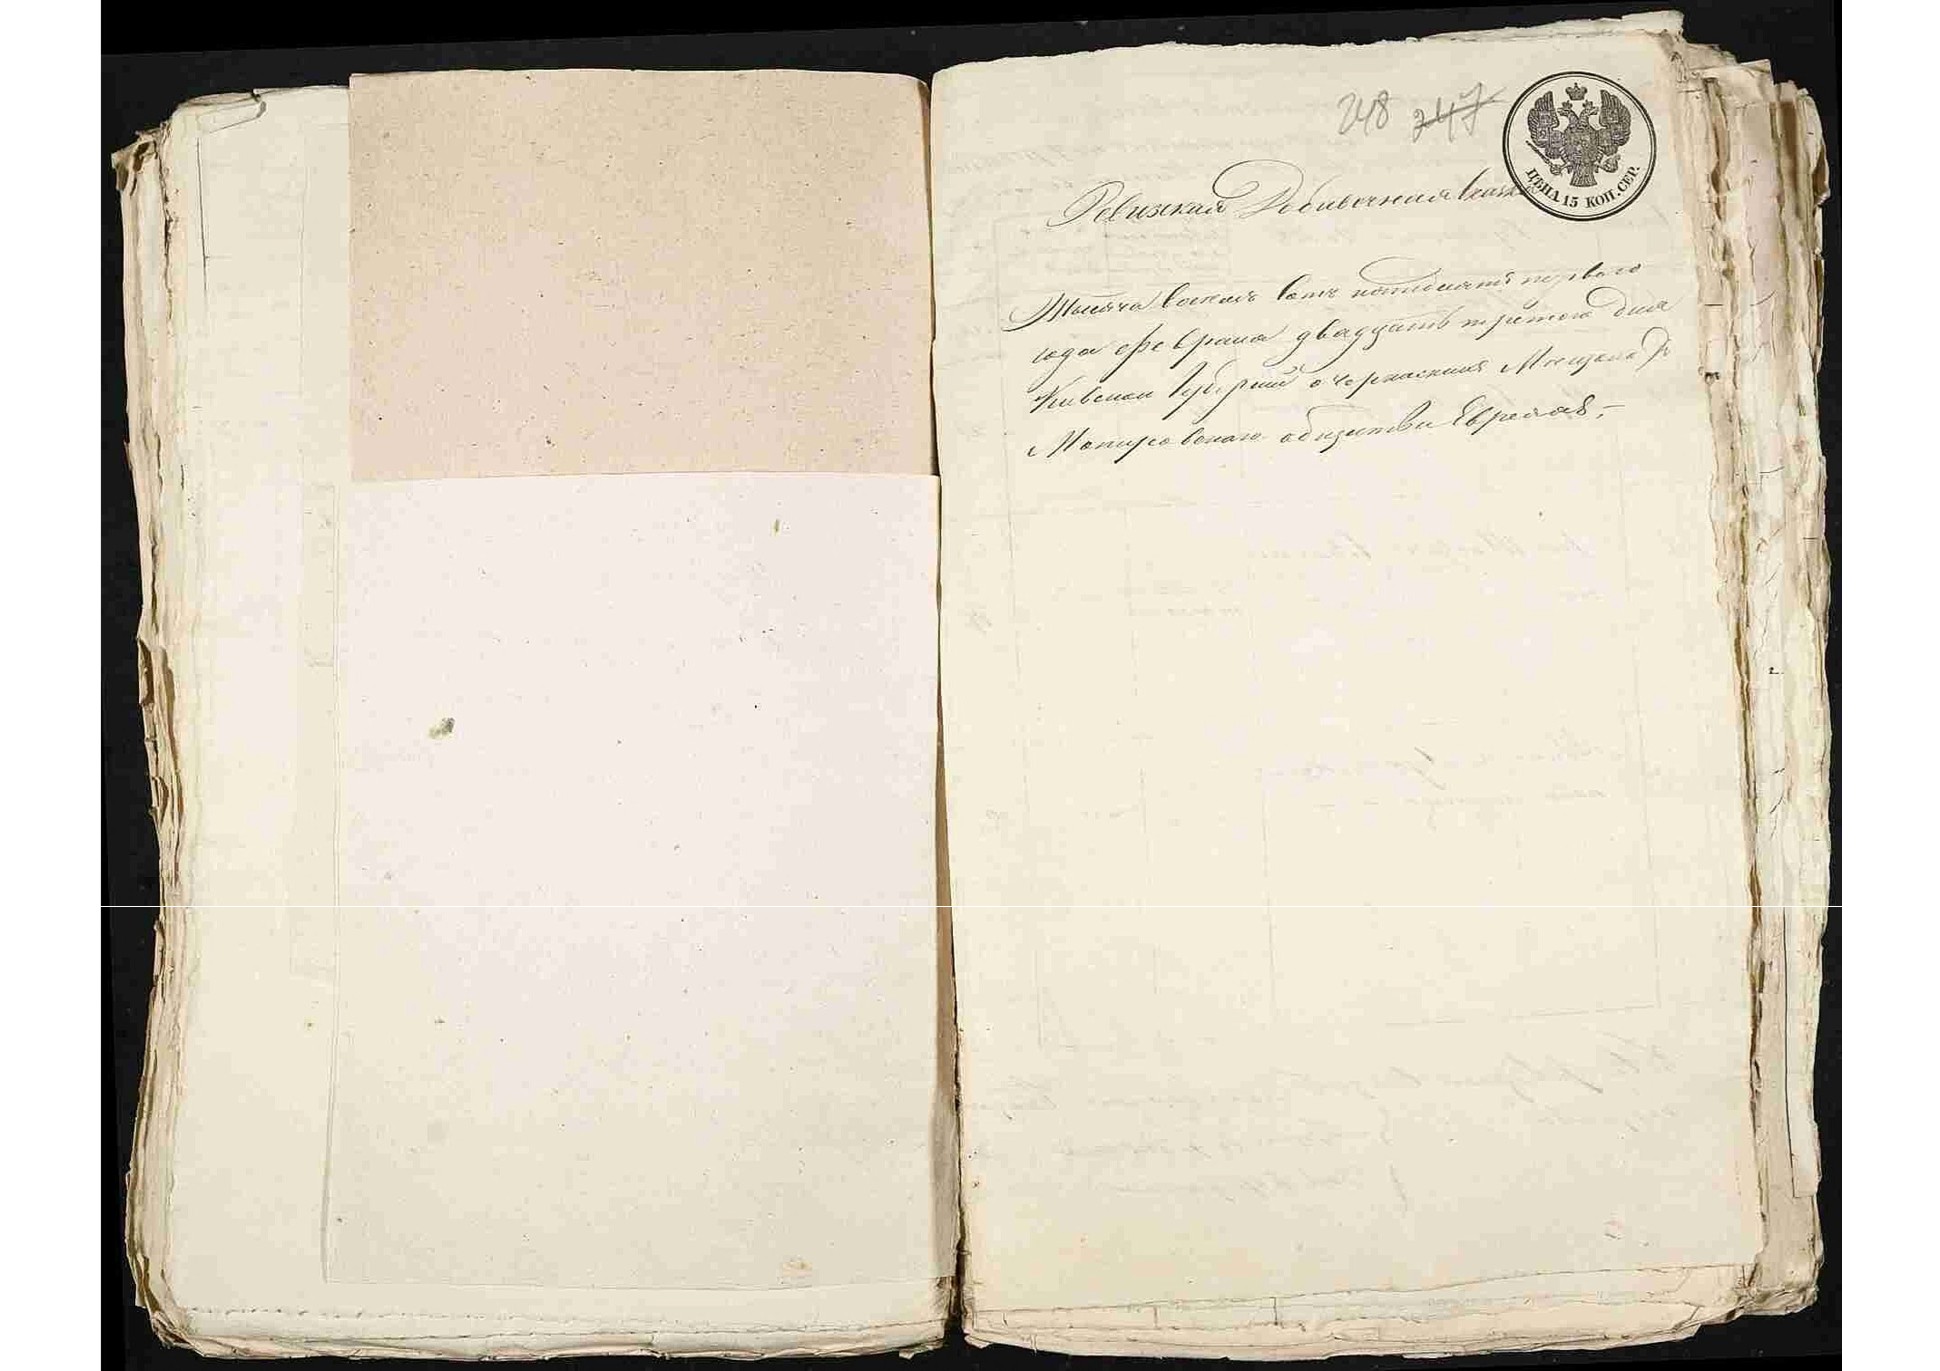 248 247
ЦѢНА 15 КОП. СЕР.
Ревизская Добавочная Сказка
Тысяча восемь сотъ пятдесятъ перваго
года февраля двадцать третого дня
Киевской Губернии о черкаскихъ Мещана
общества Евреахъ,